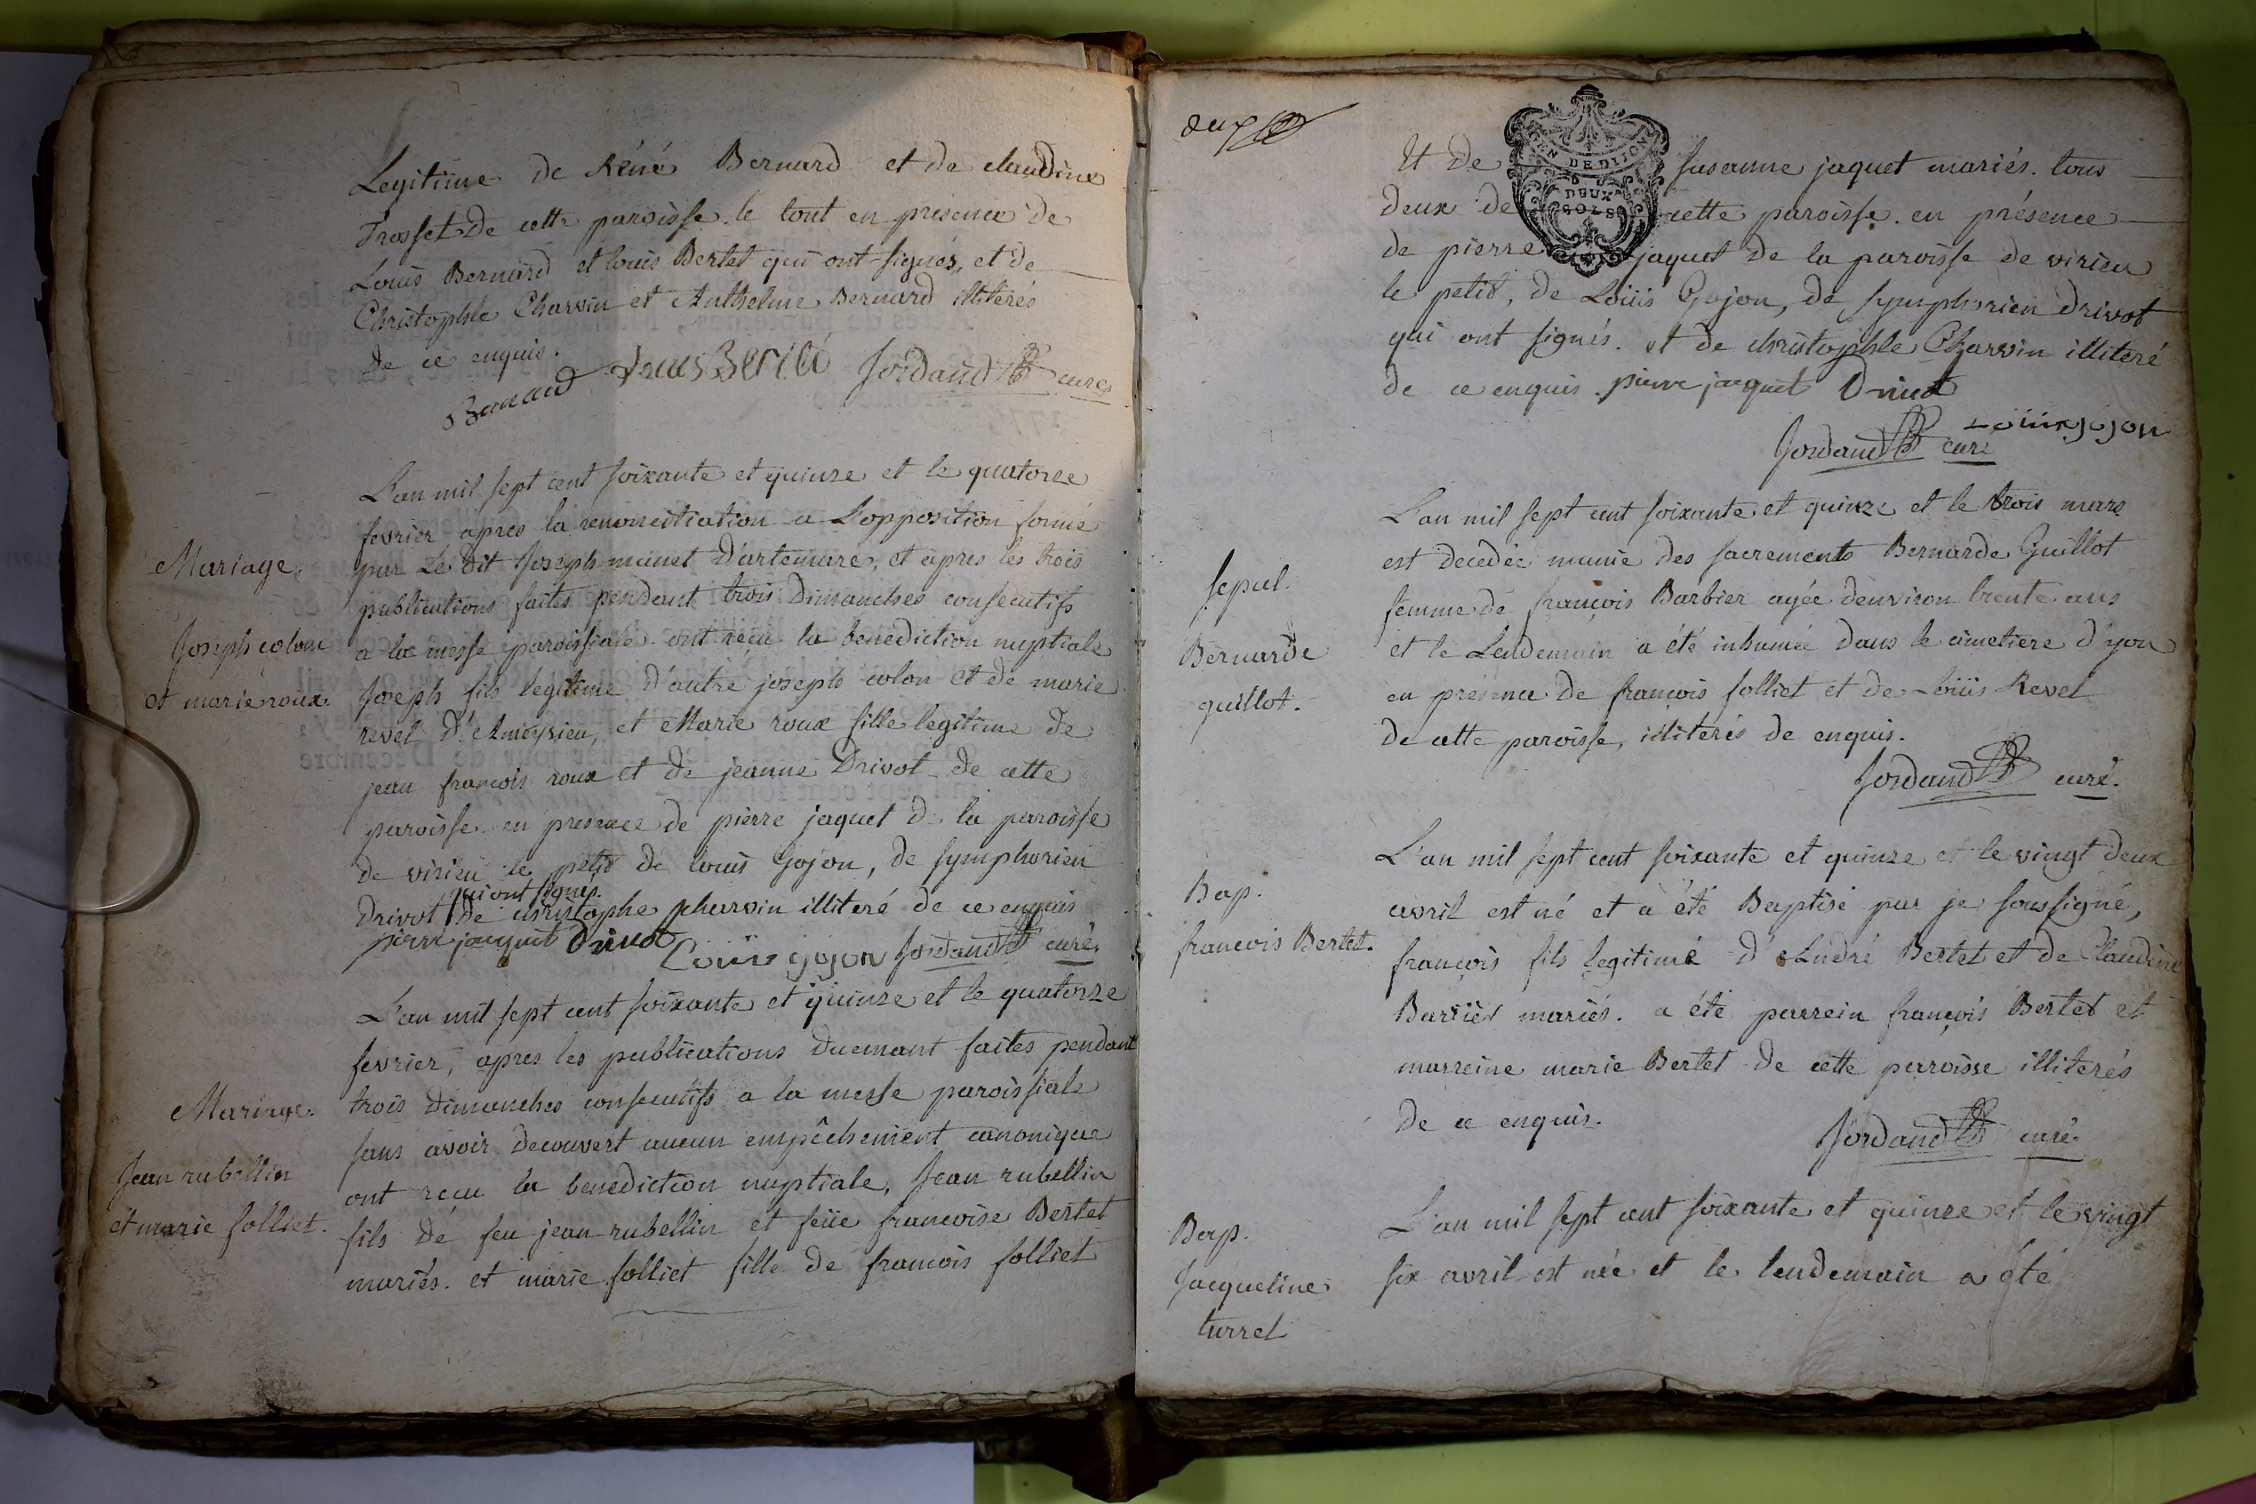 Legitime de Réné Bernard et de claudine
Trosset de cette paroisse. le tout en presence de
Louis Bernard et louis Bertet qui ont signés, et de
Christophle Charvin et Anthelme Bernard illiterés
de ce enquis.
Bernard Louis Bertet Jordand curé
Mariage.
Joseph colon
et marie roux.
L'an mil sept cent soixante et quinze et le quatorze
fevrier apres la renonciation a L'opposition formé
par Le dit Joseph munet D'artemare, et apres les trois
publications faites pendant trois Dimanches consecutifs
a la messe paroissiale ont reçu la benediction nuptiale
Joseph fils legitime d'autre joseph colon et de marie
revel d'Ameysieu, et Marie roux fille legitime de
jean françois roux et de jeanne Drivot de cette
paroisse en presence de pierre jaquet de la paroisse
de virieu le petit de louis Gojon, de symphorien
qui ont signés.
Drivot de christophe charvin illiteré de ce enquis
pierre jacquet Drivot Loüis gojon Jordand curé.
Mariage.
Jean rubellin
et marie folliet.
L'an mil sept cent soixante et quinze et le quatorze
fevrier, apres les publications duemant faites pendant
trois dimanches consecutifs a la messe paroissiale
sans avoir decouvert aucun empêchement canonique
ont recu la benediction nuptiale, Jean rubellin
fils de feu jean rubellin et feüe francoise Bertet
mariés. et marie folliet fille de francois folliet
deux
GEN DE DIJON
DEUX
SOLS
Et de Susanne jaquet mariés. tous
deux de cette paroisse. en présence
de pierre jaquet de la paroisse de virieu
le petit, de Loüis Gojon, de symphorien drivot
qui ont signés. et de christophle Charvin illiteré
de ce enquis. pierre jacquet Drivot
Loüis gojon
Jordand curé
Sepul.
Bernarde
guillot.
L'an mil sept cent soixante et quinze et le trois mars
est decédée munie des sacrements Bernarde Guillot
femme de françois Barbier agée d'environ trente ans
et le Lendemain a été inhumée dans le cimetiere d'yon
en présence de françois folliet et de Loüis Revel
de cette paroisse, illiterés de enquis.
Jordand curé.
Bap.
francois Bertet.
L'an mil sept cent soixante et quinze et le vingt deux
avril est né et a été Baptisé par je soussigné,
françois fils legitime d'André Bertet et de Claudine
Barrier mariés. a été parrein françois Bertet et
marreine marie Bertet de cette paroisse illiterés
de ce enquis.
Jordand curé.
Bap.
Jacqueline
turrel
L'an mil sept cent soixante et quinze et le vingt
six avril est née et le lendemain a été